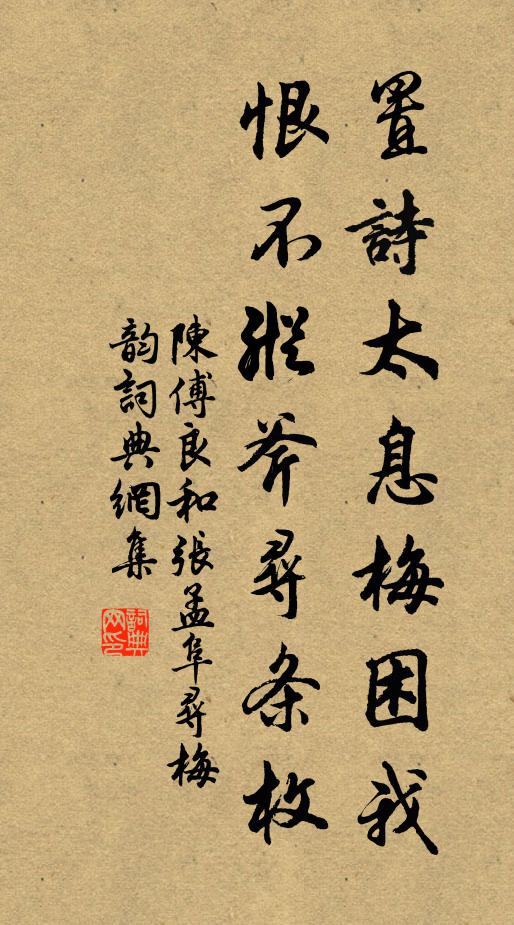 置詩太息梅困我
恨不縱斧尋条枚
陳傅良和張孟阜尋梅
韵詞典網集
詞典網印